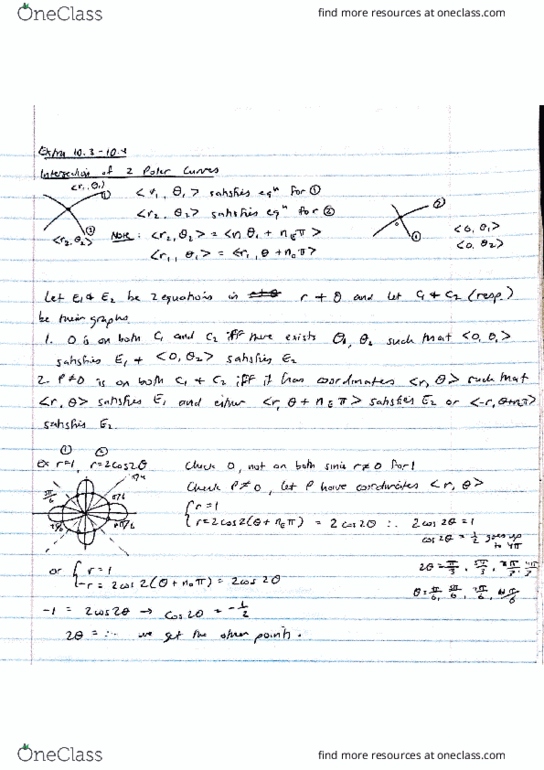 OneClass
find more resources at oneclass.com
Extra 10.3-10.4
Intersection of 2 Polar Curves
<r₁, θ₁> ①
<r₁, θ₁> satisfies eqⁿ for ①
<r₂, θ₂> satisfies eqⁿ for ②
<r₂, θ₂> ②
Note: <r₂, θ₂> = <r₁ θ₁ + n_Eπ>
<r₁, θ₁> = <r₁, θ + n₀π>
②
①
<0, θ₁>
<0, θ₂>
Let E₁ & E₂ be 2 equations in r + θ and let C₁ & C₂ (resp.)
be their graphs
1. O is on both C₁ and C₂ iff there exists θ₁, θ₂ such that <0, θ₁>
satisfies E₁ + <0, θ₂> satisfies E₂
2. P≠0 is on both C₁ + C₂ iff it has coordinates <r, θ> such that
<r, θ> satisfies E₁ and either <r, θ + n_Eπ> satisfies E₂ or <-r, θ+n₀π>
satisfies E₂.
① ②
ex r=1, r=2cos2θ
Check 0, not on both since r≠0 for 1
Check P≠0, let P have coordinates <r, θ>
{ r=1
{ r=2cos2(θ+n_Eπ) = 2cos2θ ∴ 2cos2θ=1
cos2θ=½ goes up to 4π
2θ = π/3, 5π/3, 7π/3, 11π/3
θ = π/6, 5π/6, 7π/6, 11π/6
or { r=1
{ -r = 2cos2(θ+n₀π) = 2cos2θ
-1 = 2cos2θ → cos2θ = -½
2θ = ∴ we get the other points.
OneClass
find more resources at oneclass.com